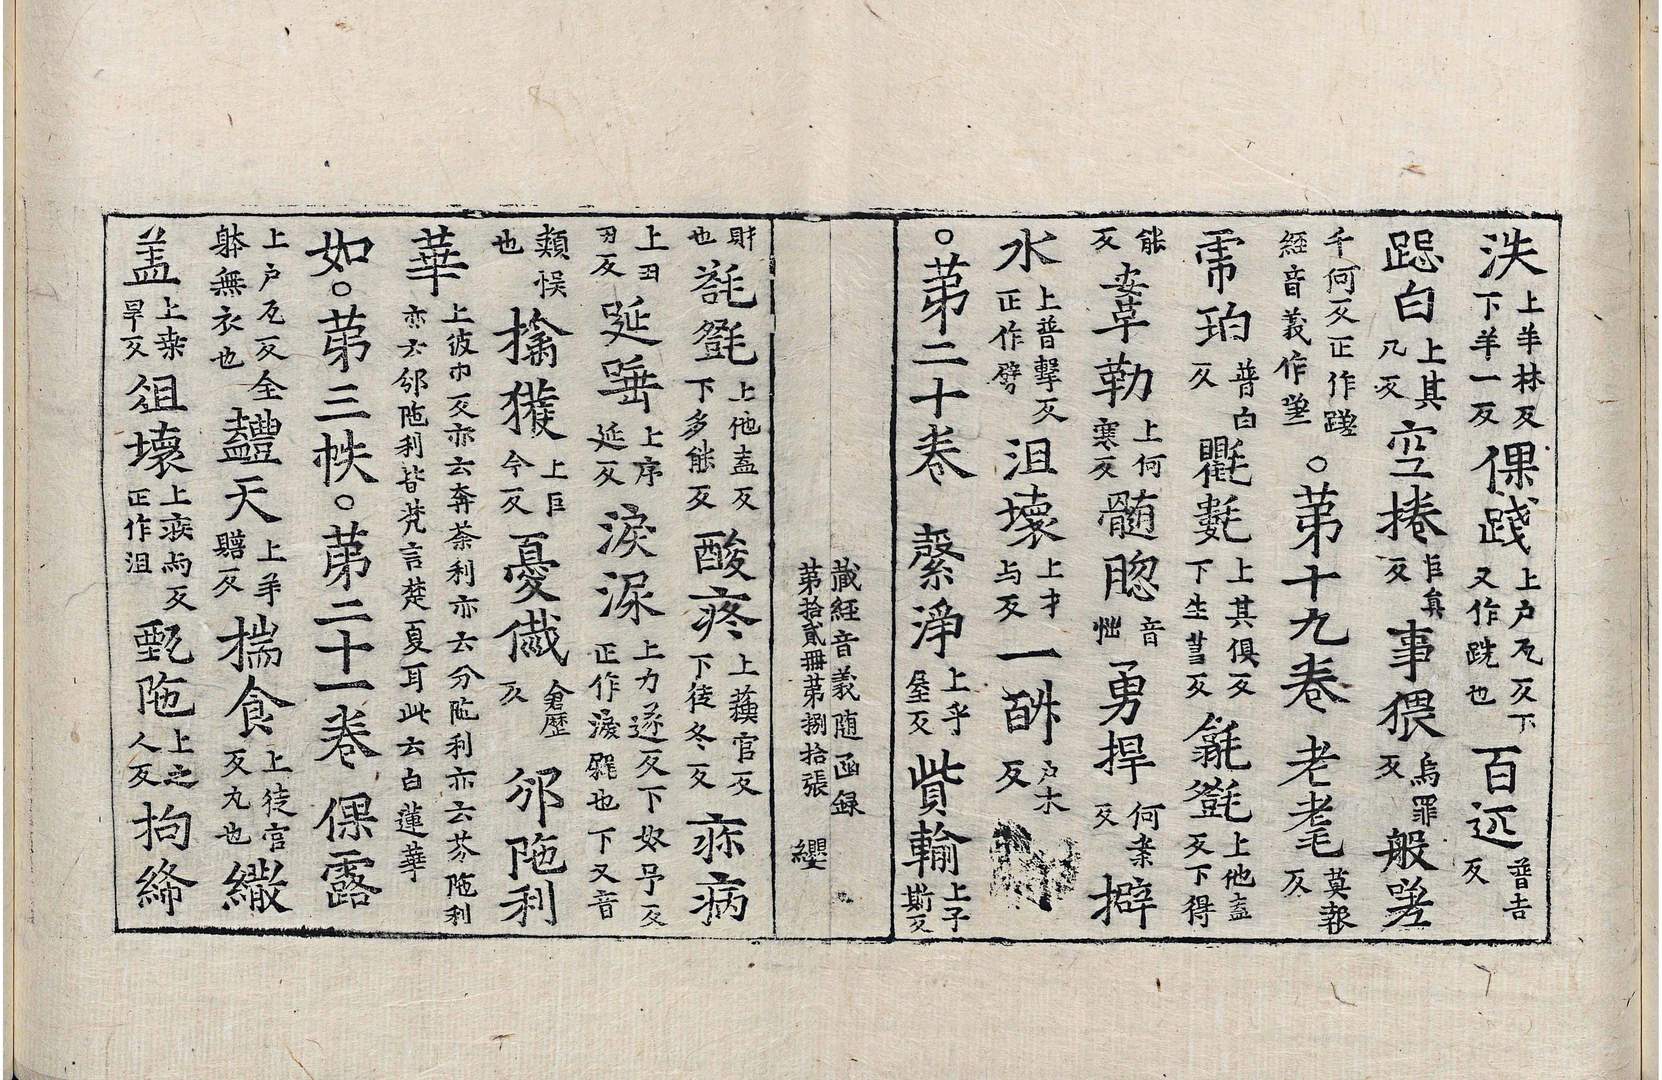 泆上羊林反下羊一反倮踐上户瓦反下又作跣也百䢐普吉反
跽白上其几反空捲巨貟反事猥烏罪反般
千何反正作蹉經音義作㘴○苐十九巻老耄莫報反
虎珀普白反氍𣰽上其俱反下生蒭反氀㲪上他盍反下得
能反安革勒上何寒反髓䐉音惱勇捍何案反擗
水上普擊反正作劈沮壞上才与反一䣧户木反
○苐二十巻繫淨上乎屋反貲輸上子斯反
藏經音義随函録苐拾貳冊苐捌拾張纓
㲪上他盍反下多能反酸疼上蘓官反下徒冬反病
上丑丑反延唾上序延反淚尿上力遂反正作淚屎也下奴予反下又音
類悮也擒獲上巨今反憂慽倉歷反邠陁利
華上彼巾反亦云奔荼利亦云分陁利亦云芬陁利亦云邠陁利皆梵言楚夏耳此云白蓮華
如○苐三帙○苐二十一巻倮露
上户瓦反全躰無衣也天上羊贍反揣食上徒官反丸也繖
盖上桒旱反徂壞上疾与反正作沮甄陁上之人反拘絺